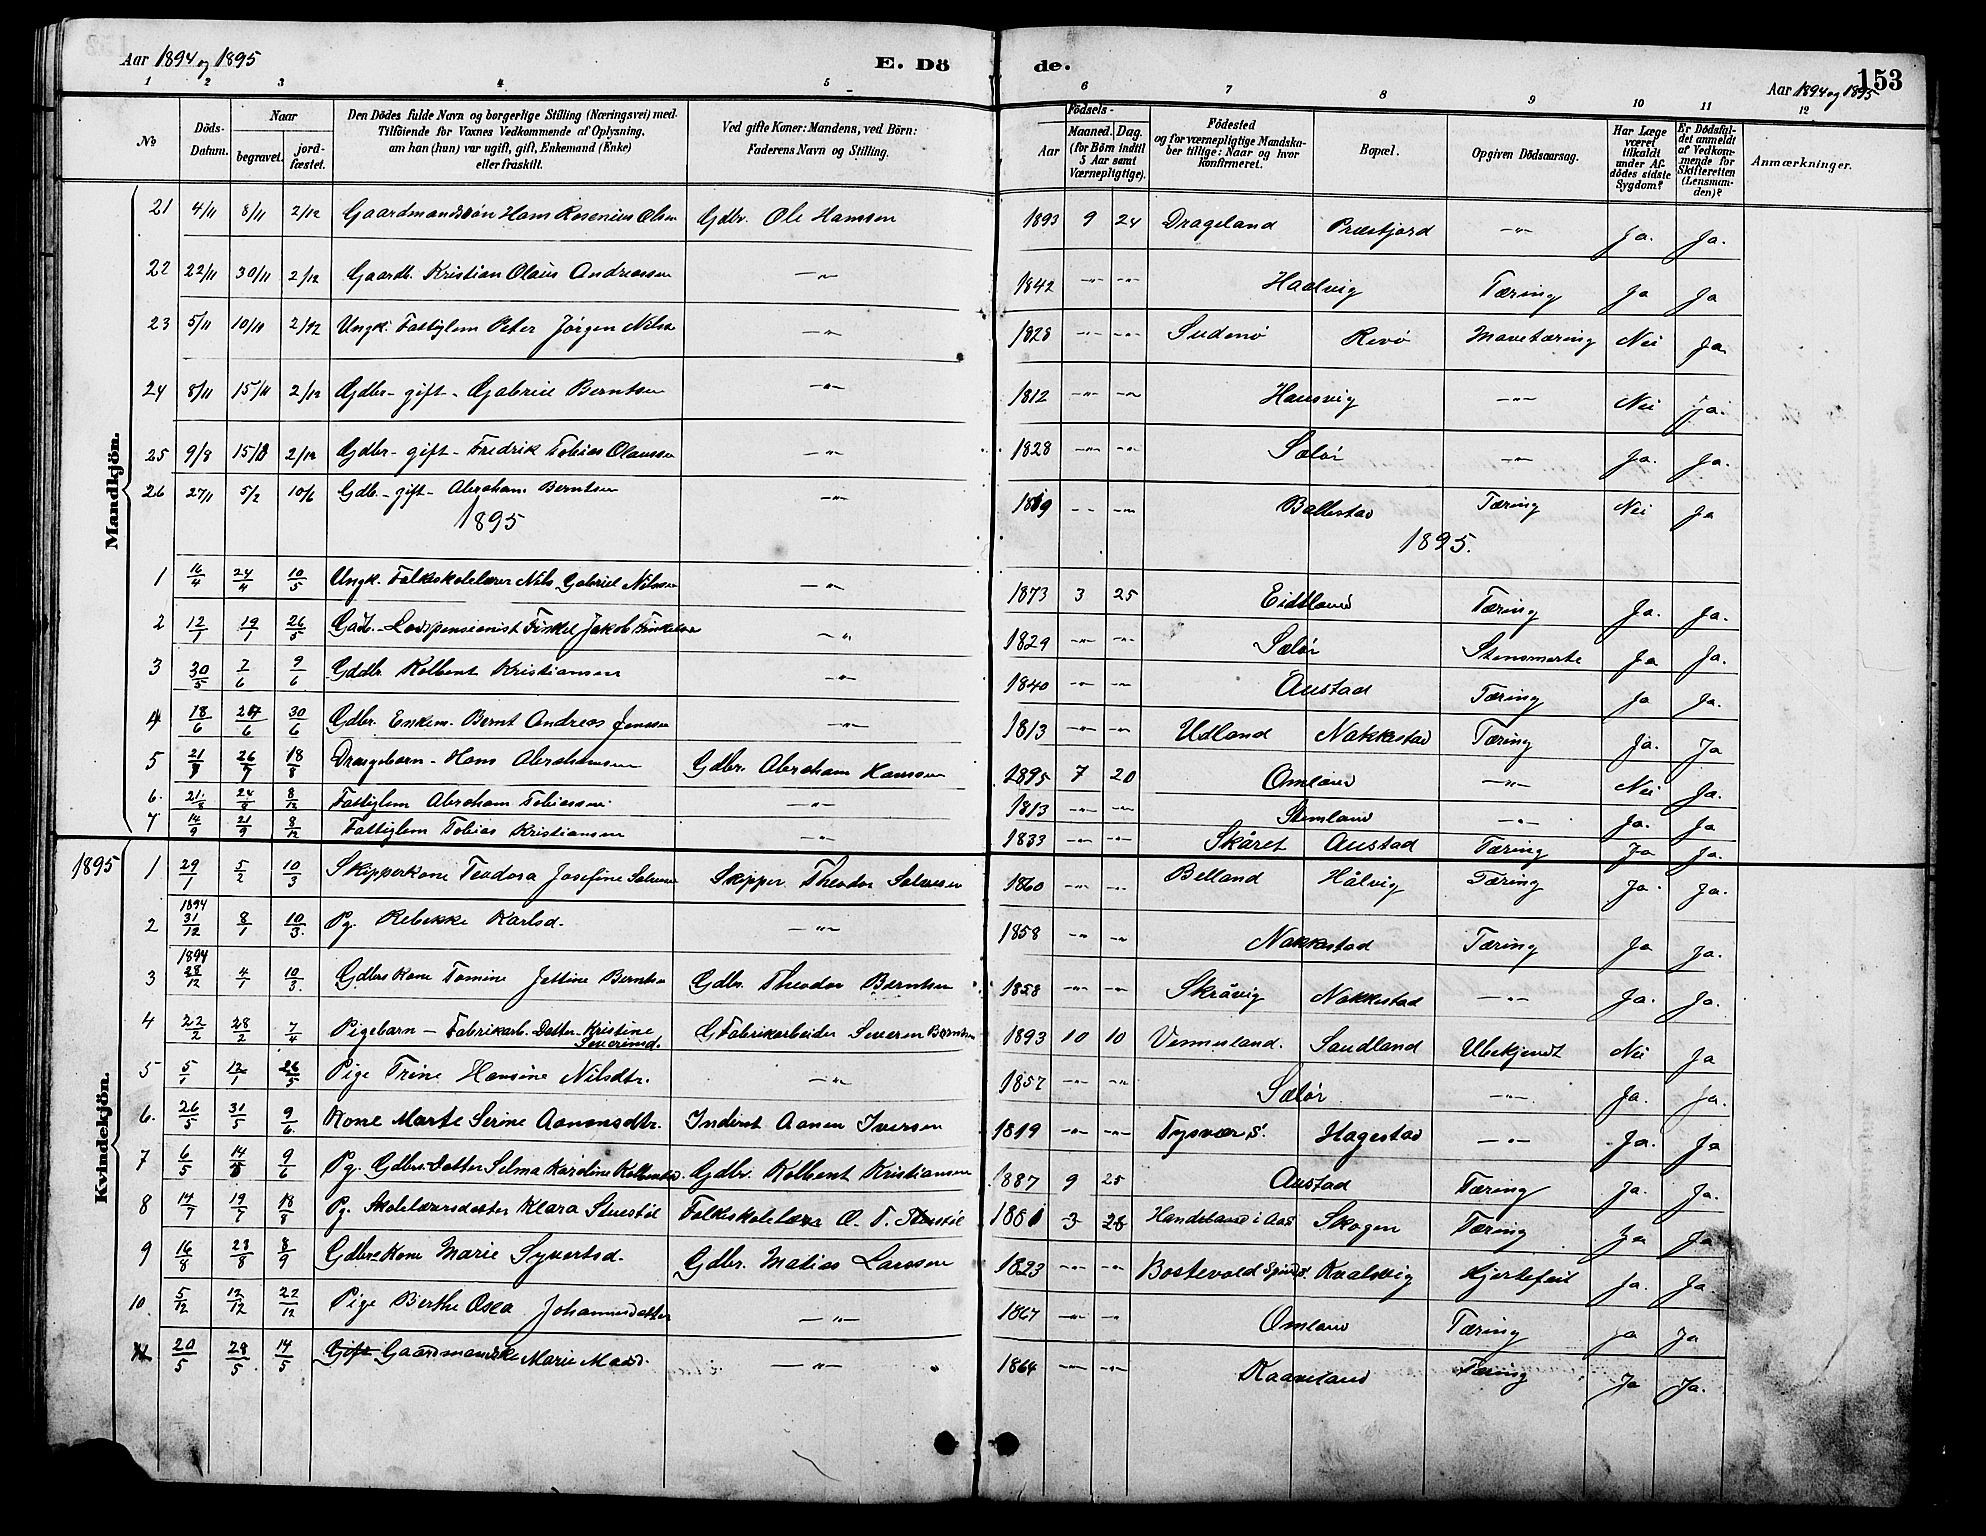 Aar 1894 og 1895 E. Dö de. Aar 1894 og 1895 153
1 2 3 4 5 6 7 8 9 10 11 12
№ Döds-Datum. Naar begravet. jord-fæstet. Den Dödes fulde Navn og borgerlige Stilling (Næringsvei) med Tilföiende for Voxnes Vedkommende af Oplysning, am han (hun) var ugift, gift, Enkemand (Enke) eller fraskilt. Ved gifte Koner: Mandens, ved Börn: Faderens Navn og Stilling. Födsels- Aar Maaned. Dag. (for Börn indtil 5 Aar samt Værnepligtige). Födested og for værnepligtige Mandskaber tillige: Naar og hvor Konfirmeret. Bopæl. Opgiven Dödsaarsag. Har Læge været tilkaldt under Afdödes sidste Sygdom? Er Dödsfaldet anmeldt af Vedkommende for Skifteretten (Lensmanden)? Anmærkninger.
Mandkjön.
21 4/11 8/11 2/12 Gaardmandssön Hans Rosenius Olsen Gdbr. Ole Hansen 1893 9 24 Drageland Præstfjord -"- Ja. Ja.
22 22/11 30/11 2/12 Gaardb. Kristian Olaus Andreassen -"- 1842 -"- -"- Haalvig Tæring Ja Ja
23 5/11 10/11 2/12 Ungk. Fattiglem Peter Jörgen Nilsen -"- 1828 -"- -"- Sudenö Revö Mavetæring Nei Ja
24 8/11 15/11 2/12 Gdbr - gift - Gabriel Berntsen -"- 1812 -"- -"- Hausvig -"- Nei Ja.
25 9/8 15/8 2/12 Gdbr - gift - Fredrik Tobias Olaussen -"- 1828 -"- -"- Sælör -"- Ja. Ja.
26 27/11 5/2 10/6 Gdb. - gift - Abraham Berntsen -"- 1819 -- -"- Ballestad Tæring Nei Ja
1895 1895.
1 16/4 24/4 10/5 Ungk. Folkeskolelærer Nils Gabriel Nilsen -"- 1873 3 25 Eidsland Tæring Ja. Ja.
2 12/1 19/1 26/5 Gadb. Lodspensionist Jakob -"- 1829 -"- -"- Sælör Stensmerte Ja Ja.
3 30/5 7/6 9/6 Gddbr Kolbent Kristiansen -"- 1840 -"- -"- Austad Tæring Ja Ja.
4 18/6 /6 30/6 Gdbr. Enkem. Bernt Andreas Jensen -"- 1813 -"- -"- Udland Nakkestad Tæring Ja. Ja
5 21/7 26/7 18/8 Drengebarn - Hans Abrahamsen Gdbr. Abraham Hanssen 1895 7 20 Omland -"- Nei Ja.
6. 21/8 24/8 8/12 Fattiglem Abraham Tobiassen -"- 1813 -"- -"- Stemland -"- Ja. Ja
7 14/9 21/9 8/12 Fattiglem Tobias Kristiansen -"- 1833 -"- -"- Skåret Austad Tæring Ja Ja.
Kvindekjön.
1895 1 29/1 5/2 10/3 Skipperkone Teodora Josefine Salvesen Skipper Theodor Salvesen 1860 -"- -"- Belland Hålvig Tæring Ja. Ja.
2 1894 31/12 8/1 10/3 Pg. Rebekke Karlsd. -"- 1858 -"- -"- Nakkestad Tæring Ja Ja.
3 1894 28/12 4/1 10/3 Gdbrs Kone Tomine Jettine Berntsen Gdbr. Theodor Berntsen 1858 -"- -"- Skråvig Nakkestad -"- Ja. Ja.
4 22/2 28/2 7/4 Pigebarn - Fabrikarb. Datter Kristine Severinsd. Fabrikarbeider Severin Berntsen 1893 10 10 Vennesland. Sandland Ubekjendt Nei Ja
5 5/1 12/1 26/5 Pige Trine Hansine Nilsdtr. -"- 1857 -"- -"- Sælör -"- Ja. Ja.
6. 26/5 31/5 9/6 Kone Marte Serine Aanensdtr. Inderst Aanen Iversen 1819 -"- -"- Tysvær S. Hagestad -"- Ja. Ja
7 6/5 14/5 9/6 Pg. Gdbrs. Datter Selma Karoline Kolbentsd. Gdbr. Kolbent Kristiansen 1887 9 25 Austad Tæring Ja. Ja.
8 14/7 19/7 18/8 Pg. Skolelærersdatter Klara Stuestöl Folkeskolelærer O. T. Stuestöl 3 28 Handeland i Aas Skogen Tæring Ja Ja
9 16/8 23/8 8/9 Gdbrs Kone Marie Syvertsd. Gdbr. Matias Larssen 1823 -"- -"- Bostevold Spinds. Kvalsvig Hjertefeil Ja. Ja.
10. 5/12 12/12 22/12 Pige Berthe Osea Johannesdatter -"- 1867 -"- -"- Omland Tæring Ja Ja
11 20/5 28/5. 14/5 Gift Gaardmandske Marie Madsd. -"- 1864 -"- -"- Kaaveland Tæring Ja Ja.